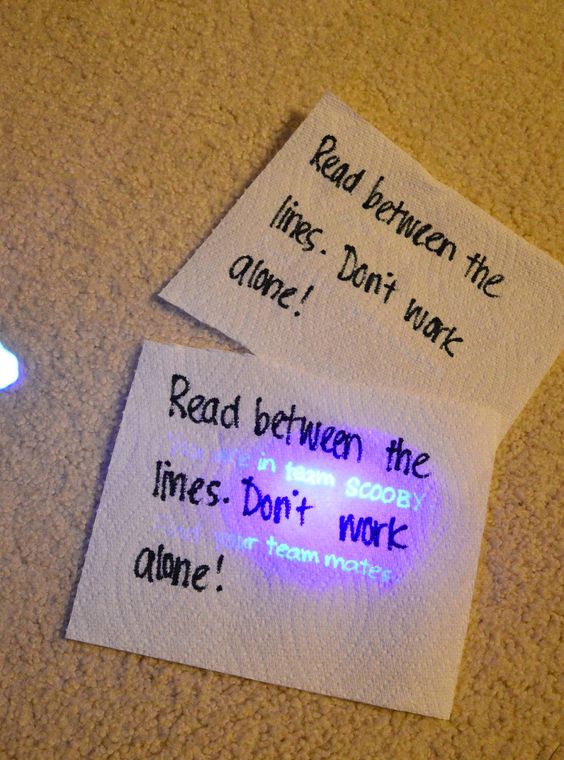 Read between the
lines. Don't work
alone!
Read between the
You are in team SCOOBY
lines. Don't work
your team mates.
alone!